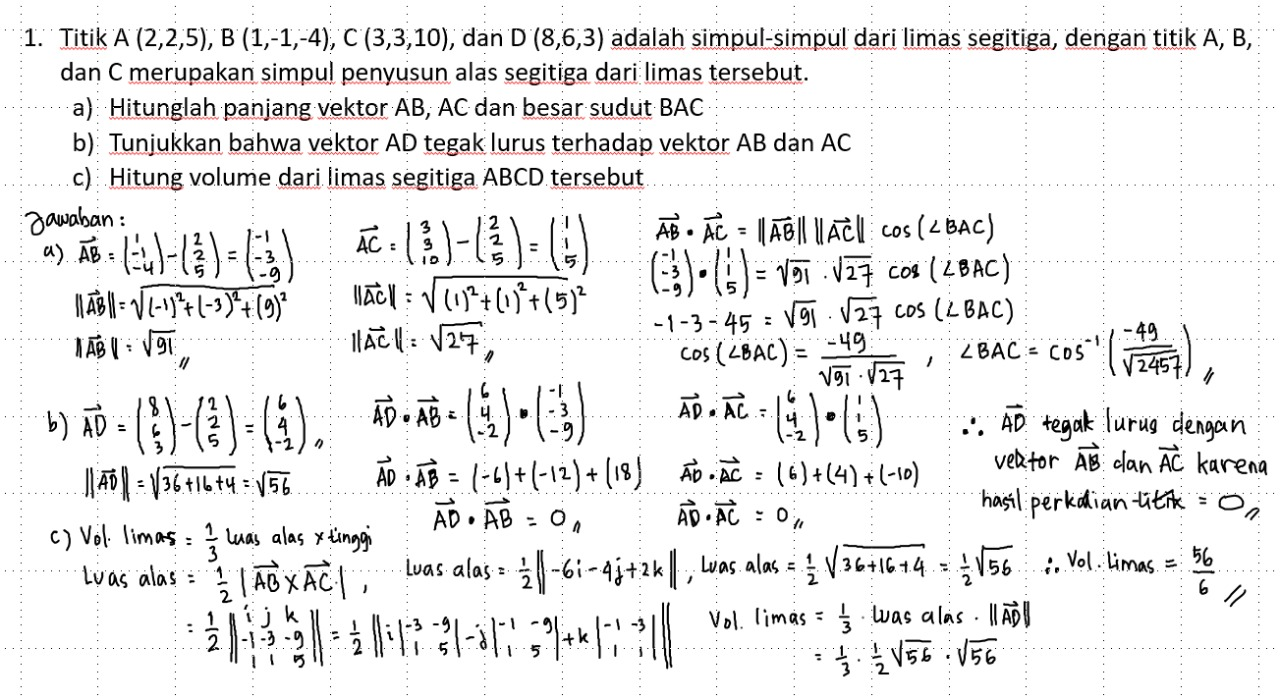 1. Titik A (2,2,5), B (1,-1,-4), C (3,3,10), dan D (8,6,3) adalah simpul-simpul dari limas segitiga, dengan titik A, B,
dan C merupakan simpul penyusun alas segitiga dari limas tersebut.
a) Hitunglah panjang vektor AB, AC dan besar sudut BAC
b) Tunjukkan bahwa vektor AD tegak lurus terhadap vektor AB dan AC
c) Hitung volume dari limas segitiga ABCD tersebut
Jawaban :
a) AB→ = (1 -1 -4) - (2 2 5) = (-1 -3 -9)
||AB→|| = √((-1)²+(-3)²+(9)²
||AB→|| = √91 //
AC→ = (3 3 10) - (2 2 5) = (1 1 5)
||AC→|| = √((1)²+(1)²+(5)²
||AC→|| = √27 //
AB→ • AC→ = ||AB→|| ||AC→|| cos (∠BAC)
(-1 -3 -9) • (1 1 5) = √91 . √27 cos (∠BAC)
-1-3-45 = √91 . √27 cos (∠BAC)
cos (∠BAC) = -49 / √91 . √27 , ∠BAC = cos⁻¹ (-49 / √2457) //
b) AD→ = (8 6 3) - (2 2 5) = (6 4 -2) //
||AD→|| = √36+16+4 = √56
AD→ • AB→ = (6 4 -2) • (-1 -3 -9)
AD→ • AB→ = (-6)+(-12)+(18)
AD→ • AB→ = 0 //
AD→ • AC→ = (6 4 -2) • (1 1 5)
AD→ • AC→ = (6)+(4)+(-10)
AD→ • AC→ = 0 //
∴ AD→ tegak lurus dengan
vektor AB→ dan AC→ karena
hasil perkalian titik = 0 //
c) Vol. limas = 1/3 luas alas x tinggi
Luas alas = 1/2 |AB→ × AC→| ,
= 1/2 || i j k -1 -3 -9 1 1 5 || = 1/2 || i |-3 -9 1 5| - j |-1 -9 1 5| + k |-1 -3 1 1| ||
Luas alas = 1/2 ||-6i-4j+2k|| , Luas alas = 1/2 √36+16+4 = 1/2 √56
Vol. limas = 1/3 . luas alas . ||AD→||
= 1/3 . 1/2 √56 . √56
∴ Vol. Limas = 56/6 //